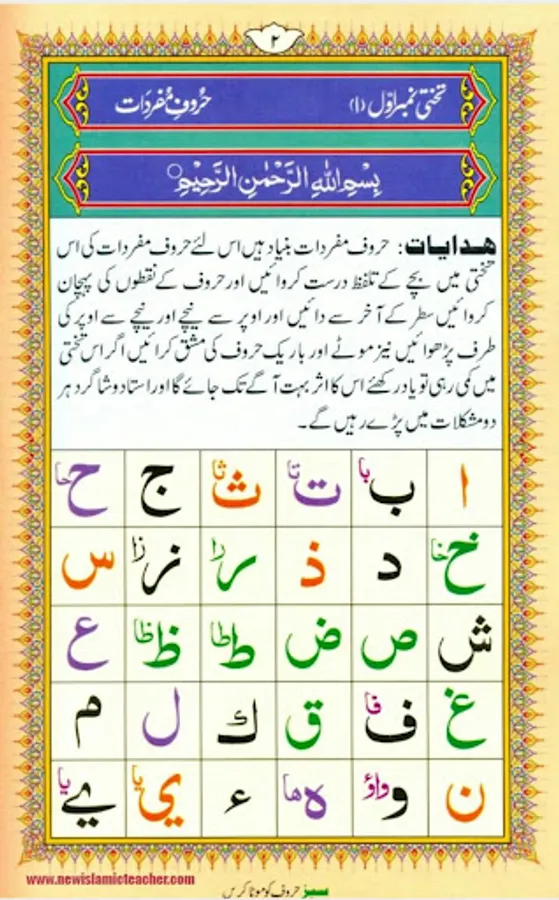 ۲
تختی نمبر اوّل (۱) حُروفِ مُفرَدَات
بِسْمِ اللهِ الرَّحْمٰنِ الرَّحِيْمِ
هدايات: حروف مفردات بنیاد ہیں اس لئے حروف مفردات کی اس
تختی میں بچے کے تلفظ درست کروائیں اور حروف کے نقطوں کی پہچان
کروائیں سطر کے آخر سے دائیں اور اوپر سے نیچے اور نیچے سے اوپر کی
طرف پڑھوائیں نیز موٹے اور باریک حروف کی مشق کرائیں اگر اس تختی
میں کمی رہی تو یاد رکھئے اس کا اثر بہت آگے تک جائے گا اور استاد و شاگرد ہر
دو مشکلات میں پڑے رہیں گے۔
ا ب با ت تا ث ثا ج ح حا
خ خا د ذ ر را ز زا س
ش ص ض ط طا ظ ظا ع
غ ف فا ق ك ل م
ن و واؤ ه ها ء ي يا ے يا
www.newislamicteacher.com
سبز حروف کو موٹا کریں